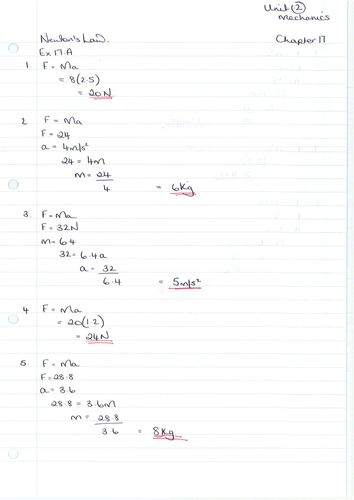 Unit 2
Mechanics
Newton's Law.
Chapter 17
Ex 17.A
1. F = Ma
= 8(2.5)
= 20N
2 F = Ma
F = 24
a = 4m/s²
24 = 4m
m = 24
4
= 6Kg
3. F = Ma
F = 32N
m = 6.4
32 = 6.4a
a = 32
6.4
= 5m/s²
4 F = Ma
= 20(1.2)
= 24N
5. F = Ma
F = 28.8
a = 3.6
28.8 = 3.6m
m = 28.8
3.6
= 8Kg